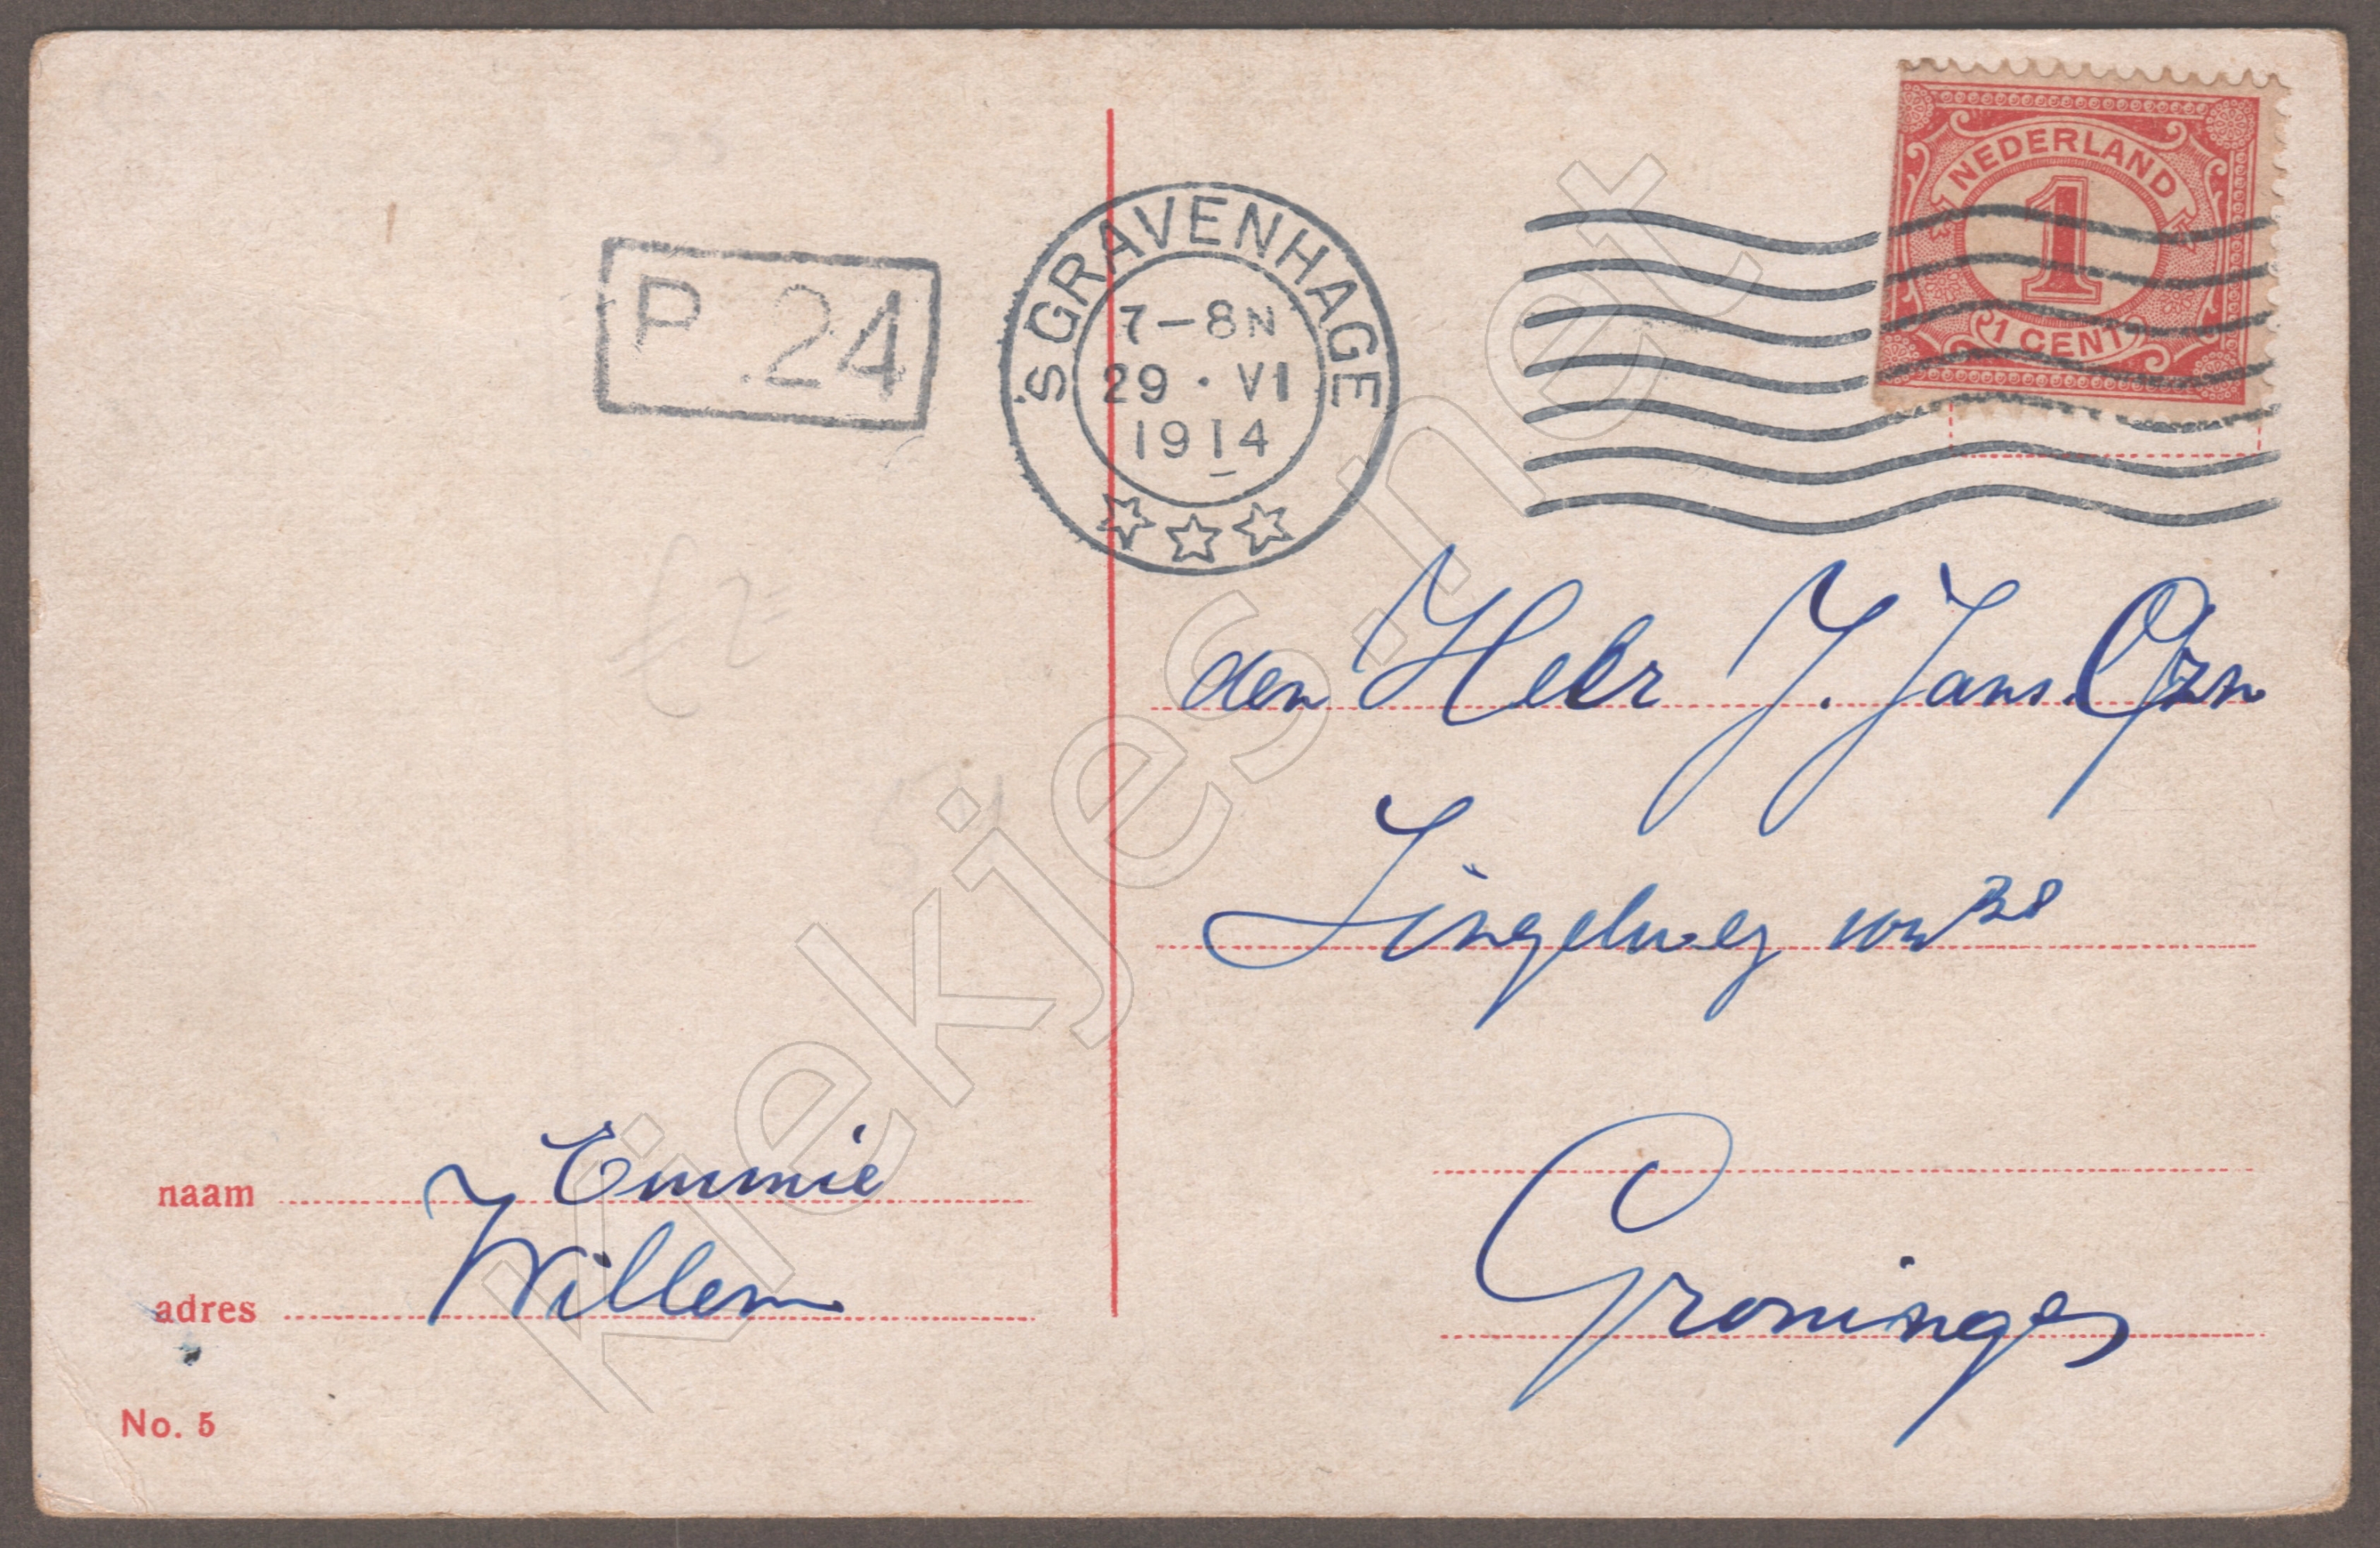 NEDERLAND
1
1 CENT
P. 24
'S GRAVENHAGE
7-8N
29 · VI
1914
den Heer J. Jans. Gzn
Singelweg
Groningen
naam Emmie
adres Willem
No. 5
kiekjes.net